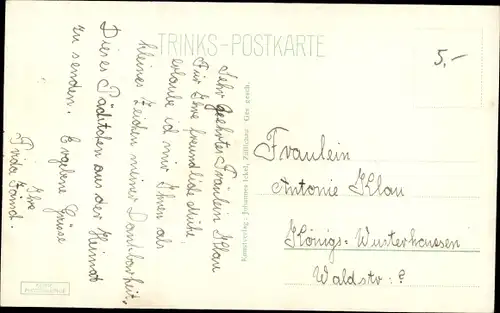 TRINKS-POSTKARTE
5,-
Sehr geehrtes Fräulein Klau
Für Ihre freundliche Mühe
erlaube ich mir Ihnen als
kleines Zeichen meiner Dankbarkeit,
Dieses Päckchen aus der Heimat
zu senden. Ergebene Grüsse
Ihre
Frida
Kunstverlag - Johannes Ickel, Züllichau Ges. gesch.
Fräulein
Antonie Klau
Königs-Wusterhausen
Waldstr: ?